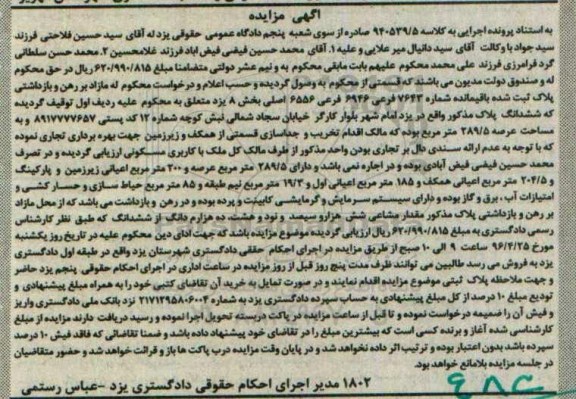 آگهی مزایده
به استناد پرونده اجرایی به کلاسه ۹۴۰۵۳۹/۵ صادره از سوی شعبه پنجم دادگاه عمومی حقوقی یزد له آقای سید حسین فلاحتی فرزند
سید جواد با وکالت آقای سید دانیال میر علایی و علیه ۱. آقای محمد حسین فیضی فیض اباد فرزند غلامحسین ۲. محمد حسن سلطانی
گرد فرامرزی فرزند علی محمد محکوم علیهم بابت مابقی محکوم به و نیم عشر دولتی متضامنا مبلغ ۶۲۰/۹۹۰/۸۱۵ ریال در حق محکوم
له و صندوق دولت مدیون می باشند که قسمتی از محکوم به وصول گردیده و حسب اعلام و درخواست محکوم له مازاد بر رهن و بازداشتی
پلاک ثبت شده باقیمانده شماره ۷۶۴۳ فرعی ۶۹۴۶ فرعی ۶۵۵۶ اصلی بخش ۸ یزد متعلق به محکوم علیه ردیف اول توقیف گردیده
که ششدانگ پلاک مذکور واقع در یزد امام شهر بلوار کارگر خیابان سجاد شمالی نبش کوچه شماره ۱۲ کد پستی ۸۹۱۷۷۷۷۶۵۷ و به
مساحت عرصه ۲۸۹/۵ متر مربع بوده که مالک اقدام تخریب و جداسازی قسمتی از همکف و زیرزمین جهت بهره برداری تجاری نموده
که با توجه به عدم ارائه سندی دال بر تجاری بودن واحد مذکور از طرف مالک کل ملک با کاربری مسکونی ارزیابی گردیده و در تصرف
محمد حسین فیضی فیض آبادی بوده و در اجاره نمی باشد و دارای ۲۸۹/۵ متر مربع عرصه و ۲۰۰ متر مربع اعیانی زیرزمین و پارکینگ
و ۲۰۴/۵ متر مربع اعیانی همکف و ۱۸۵ متر مربع اعیانی اول و ۱۹/۳ متر مربع نیم طبقه و ۸۵ متر مربع حیاط سازی و حصار کشی و
امتیازات آب ، برق و گاز بوده و دارای سیستم سرمایش و گرمایشی کابینت و پرده بوده و در رهن و بازداشت می باشد که از محل مازاد
بر رهن و بازداشتی پلاک مذکور مقدار مشاعی شش هزارو سیصد و نود و هشت ده هزارم دانگ از ششدانگ که طبق نظر کارشناس
رسمی دادگستری به مبلغ ۶۲۰/۹۹۰/۸۱۵ ریال ارزیابی گردیده موضوع مزایده باشد که جهت ادای دین محکوم علیه در تاریخ روز یکشنبه
مورخ ۹۶/۴/۲۵ ساعت ۹ الی ۱۰ صبح از طریق مزایده در اجرای احکام حققی دادگستری شهرستان یزد واقع در طبقه اول دادگستری
یزد به فروش می رسد طالبین می توانند ظرف مدت پنج روز قبل از روز مزایده در ساعت اداری در اجرای احکام حقوقی پنجم یزد حاضر
و جهت ملاحظه پلاک ثبتی موضوع مزایده اقدام نمایند و در صورت تمایل به خرید آن تقاضای کتبی خود را به همراه مبلغ پیشنهادی و
تودیع مبلغ ۱۰ درصد از کل مبلغ پیشنهادی به حساب سپرده دادگستری یزد به شماره ۲۱۷۱۲۹۵۸۰۶۰۰۴ نزد بانک ملی دادگستری واریز
و فیش آن را ضمیمه درخواست نموده و تا قبل از ساعت مزایده در پاکت دربسته تحویل اجرا نموده و رسید دریافت دارند مزایده از مبلغ
کارشناسی شده آغاز و برنده کسی است که بیشترین مبلغ را در تقاضای خود پیشنهاد داده باشد و ضمنا تقاضائی که فاقد فیش ۱۰ درصد
سپرده باشد بدون اعتبار بوده و ترتیب اثر داده نخواهد شد و در پایان وقت مزایده درب پاکت ها باز و قرائت خواهد شد و حضور متقاضیان
در جلسه مزایده بلامانع خواهد بود.
۱۸۰۲ مدیر اجرای احکام حقوقی دادگستری یزد -عباس رستمی